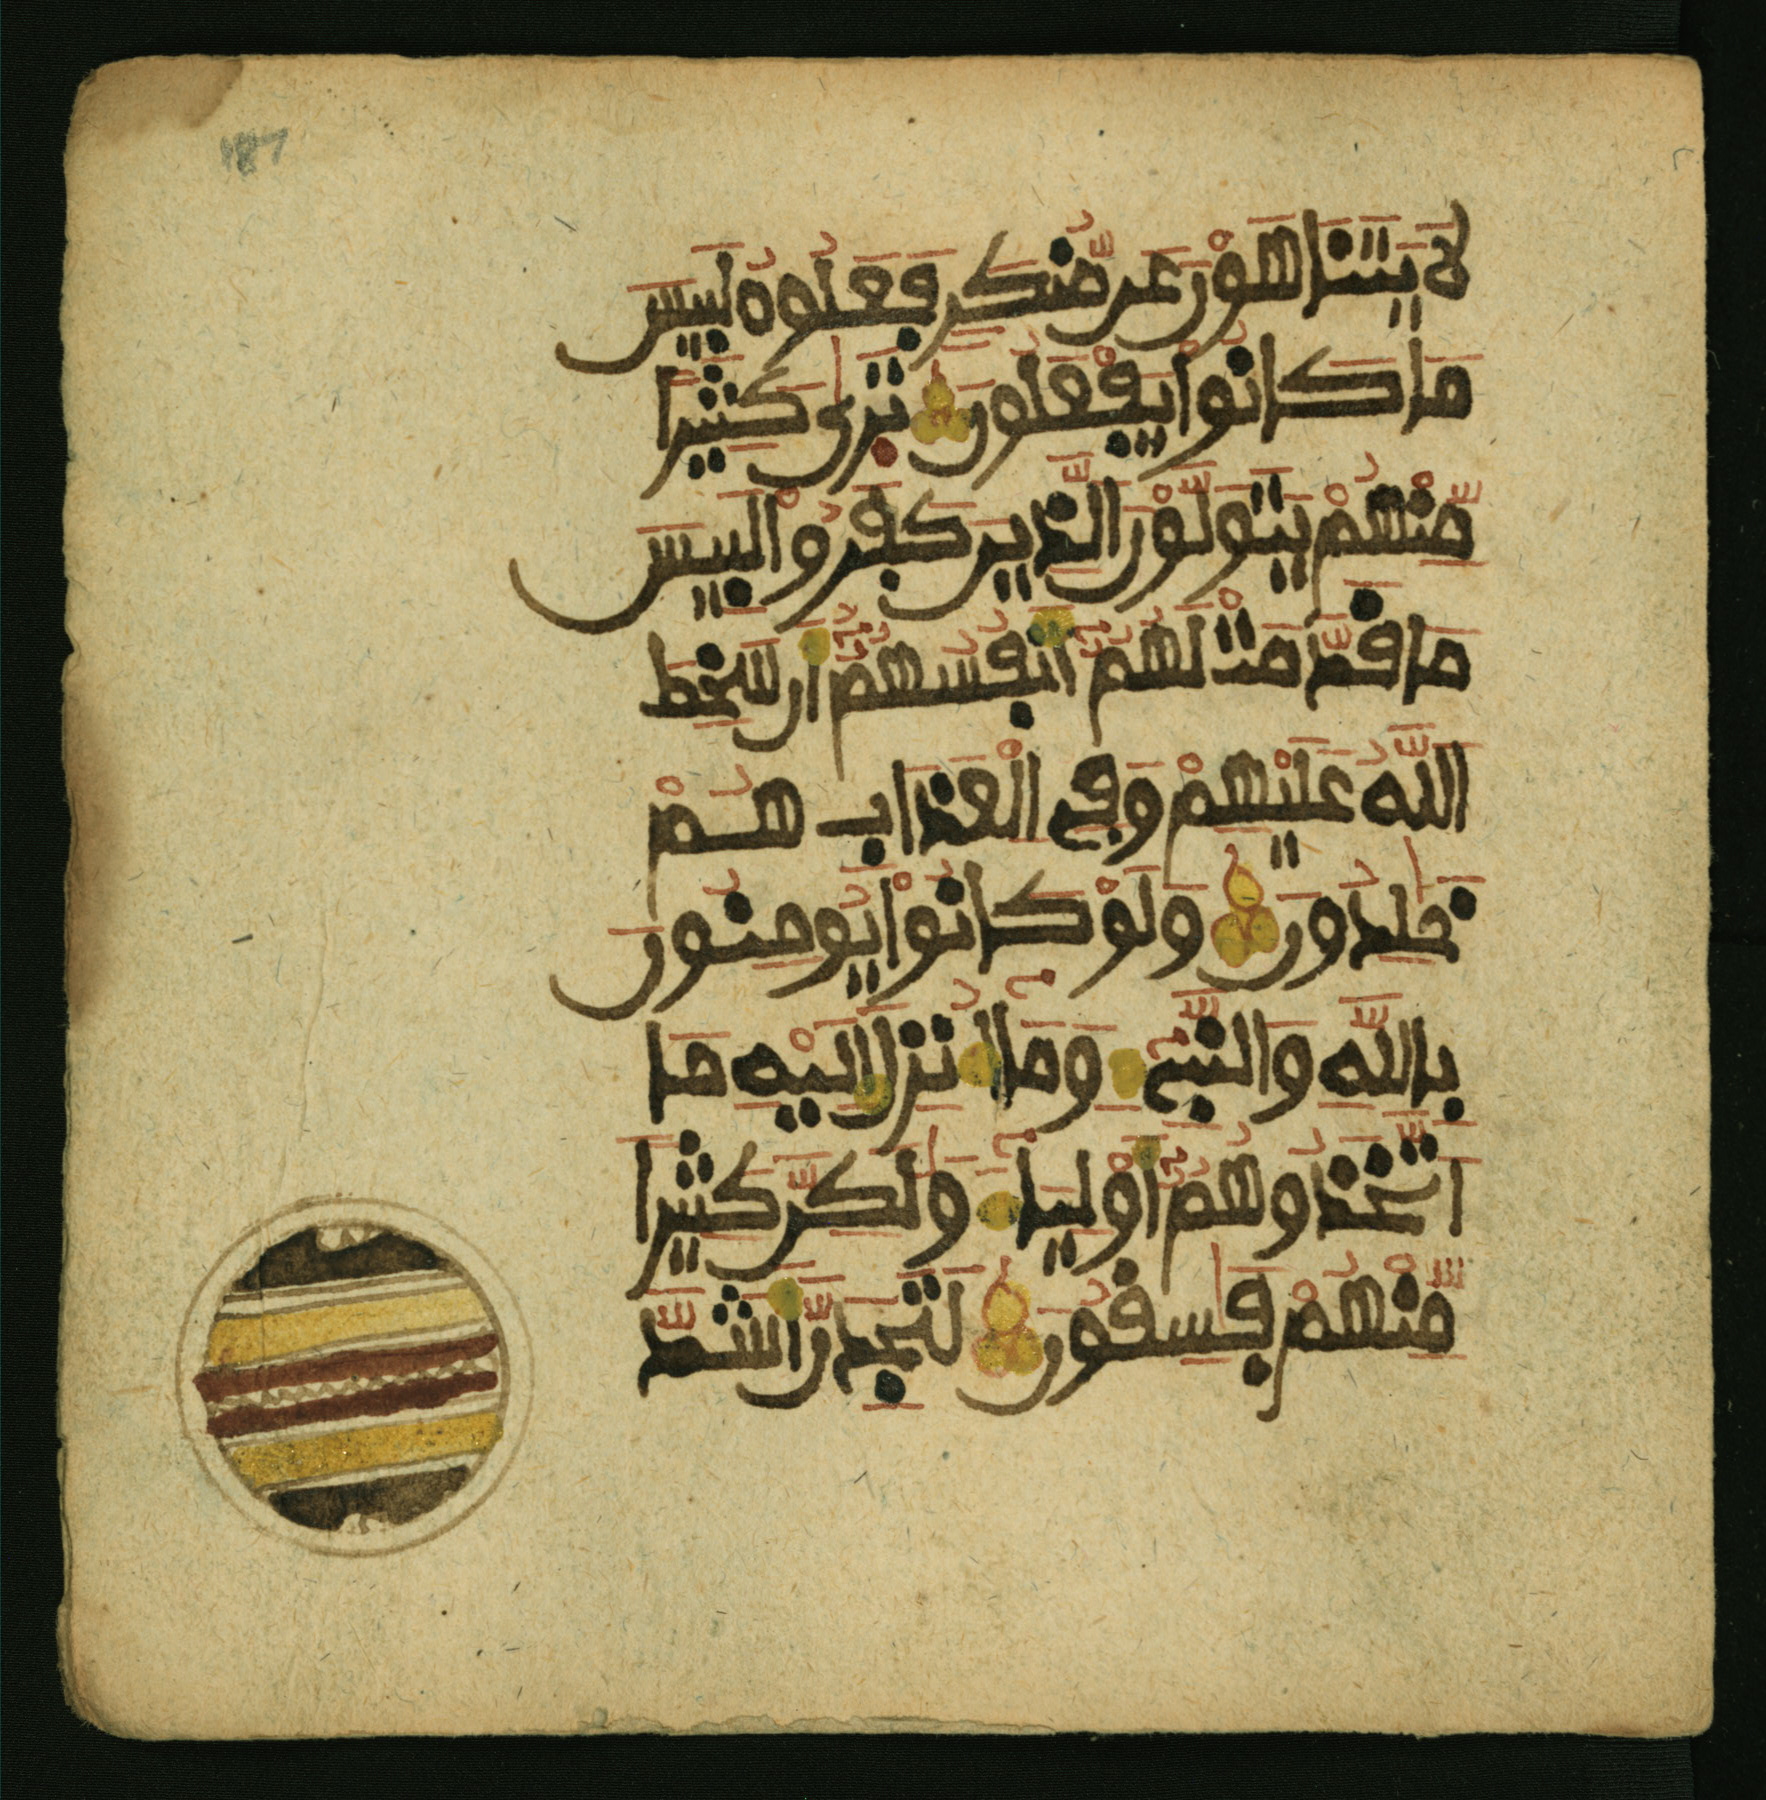 187
لَا يَتَنَاهَوْنَ عَن مُّنكَرٍ فَعَلُوهُ لَبِيسَ
مَا كَانُواْ يَفْعَلُونَ تَرَىٰ كَثِيرًا
مِّنْهُمْ يَتَوَلَّوْنَ الَّذِينَ كَفَرُواْ لَبِيسَ
مَا قَدَّمَتْ لَهُمُۥٓ أَنفُسُهُمُۥٓ أَن سَخِطَ
اللَّهُ عَلَيْهِمْ وَفِي الْعَذَابِ هُمْ
خَٰلِدُونَ وَلَوْ كَانُواْ يُومِنُونَ
بِاللَّهِ وَالنَّبِيٓءِ وَمَآ أُنزِلَ إِلَيْهِ مَا
اتَّخَذُوهُمُۥٓ أَوْلِيَآءَ وَلَٰكِنَّ كَثِيرًا
مِّنْهُمْ فَٰسِقُونَ لَتَجِدَنَّ أَشَدَّ